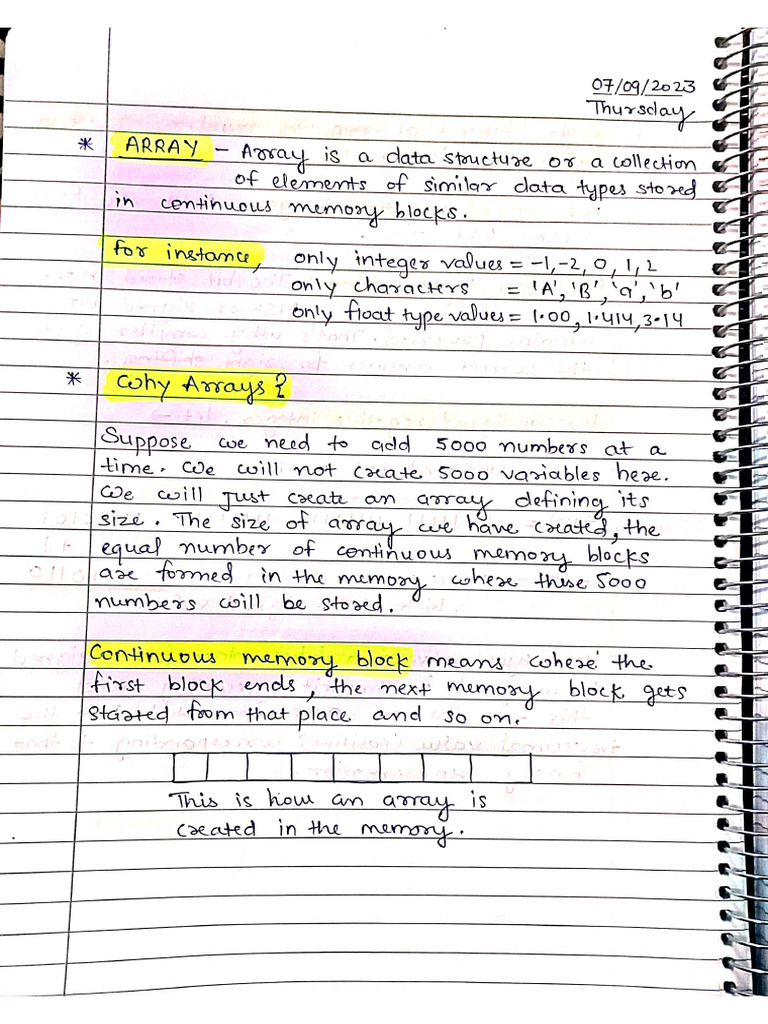 07/09/2023
Thursday
* ARRAY - Array is a data structure or a collection
of elements of similar data types stored
in continuous memory blocks.
for instance, only integer values = -1, -2, 0, 1, 2
only characters = 'A', 'B', 'a', 'b'
only float type values = 1.00, 1.414, 3.14
* Why Arrays?
Suppose we need to add 5000 numbers at a
time. We will not create 5000 variables here.
We will just create an array defining its
size. The size of array we have created, the
equal number of continuous memory blocks
are formed in the memory where these 5000
numbers will be stored.
Continuous memory block means where the
first block ends, the next memory block gets
started from that place and so on.
This is how an array is
created in the memory.